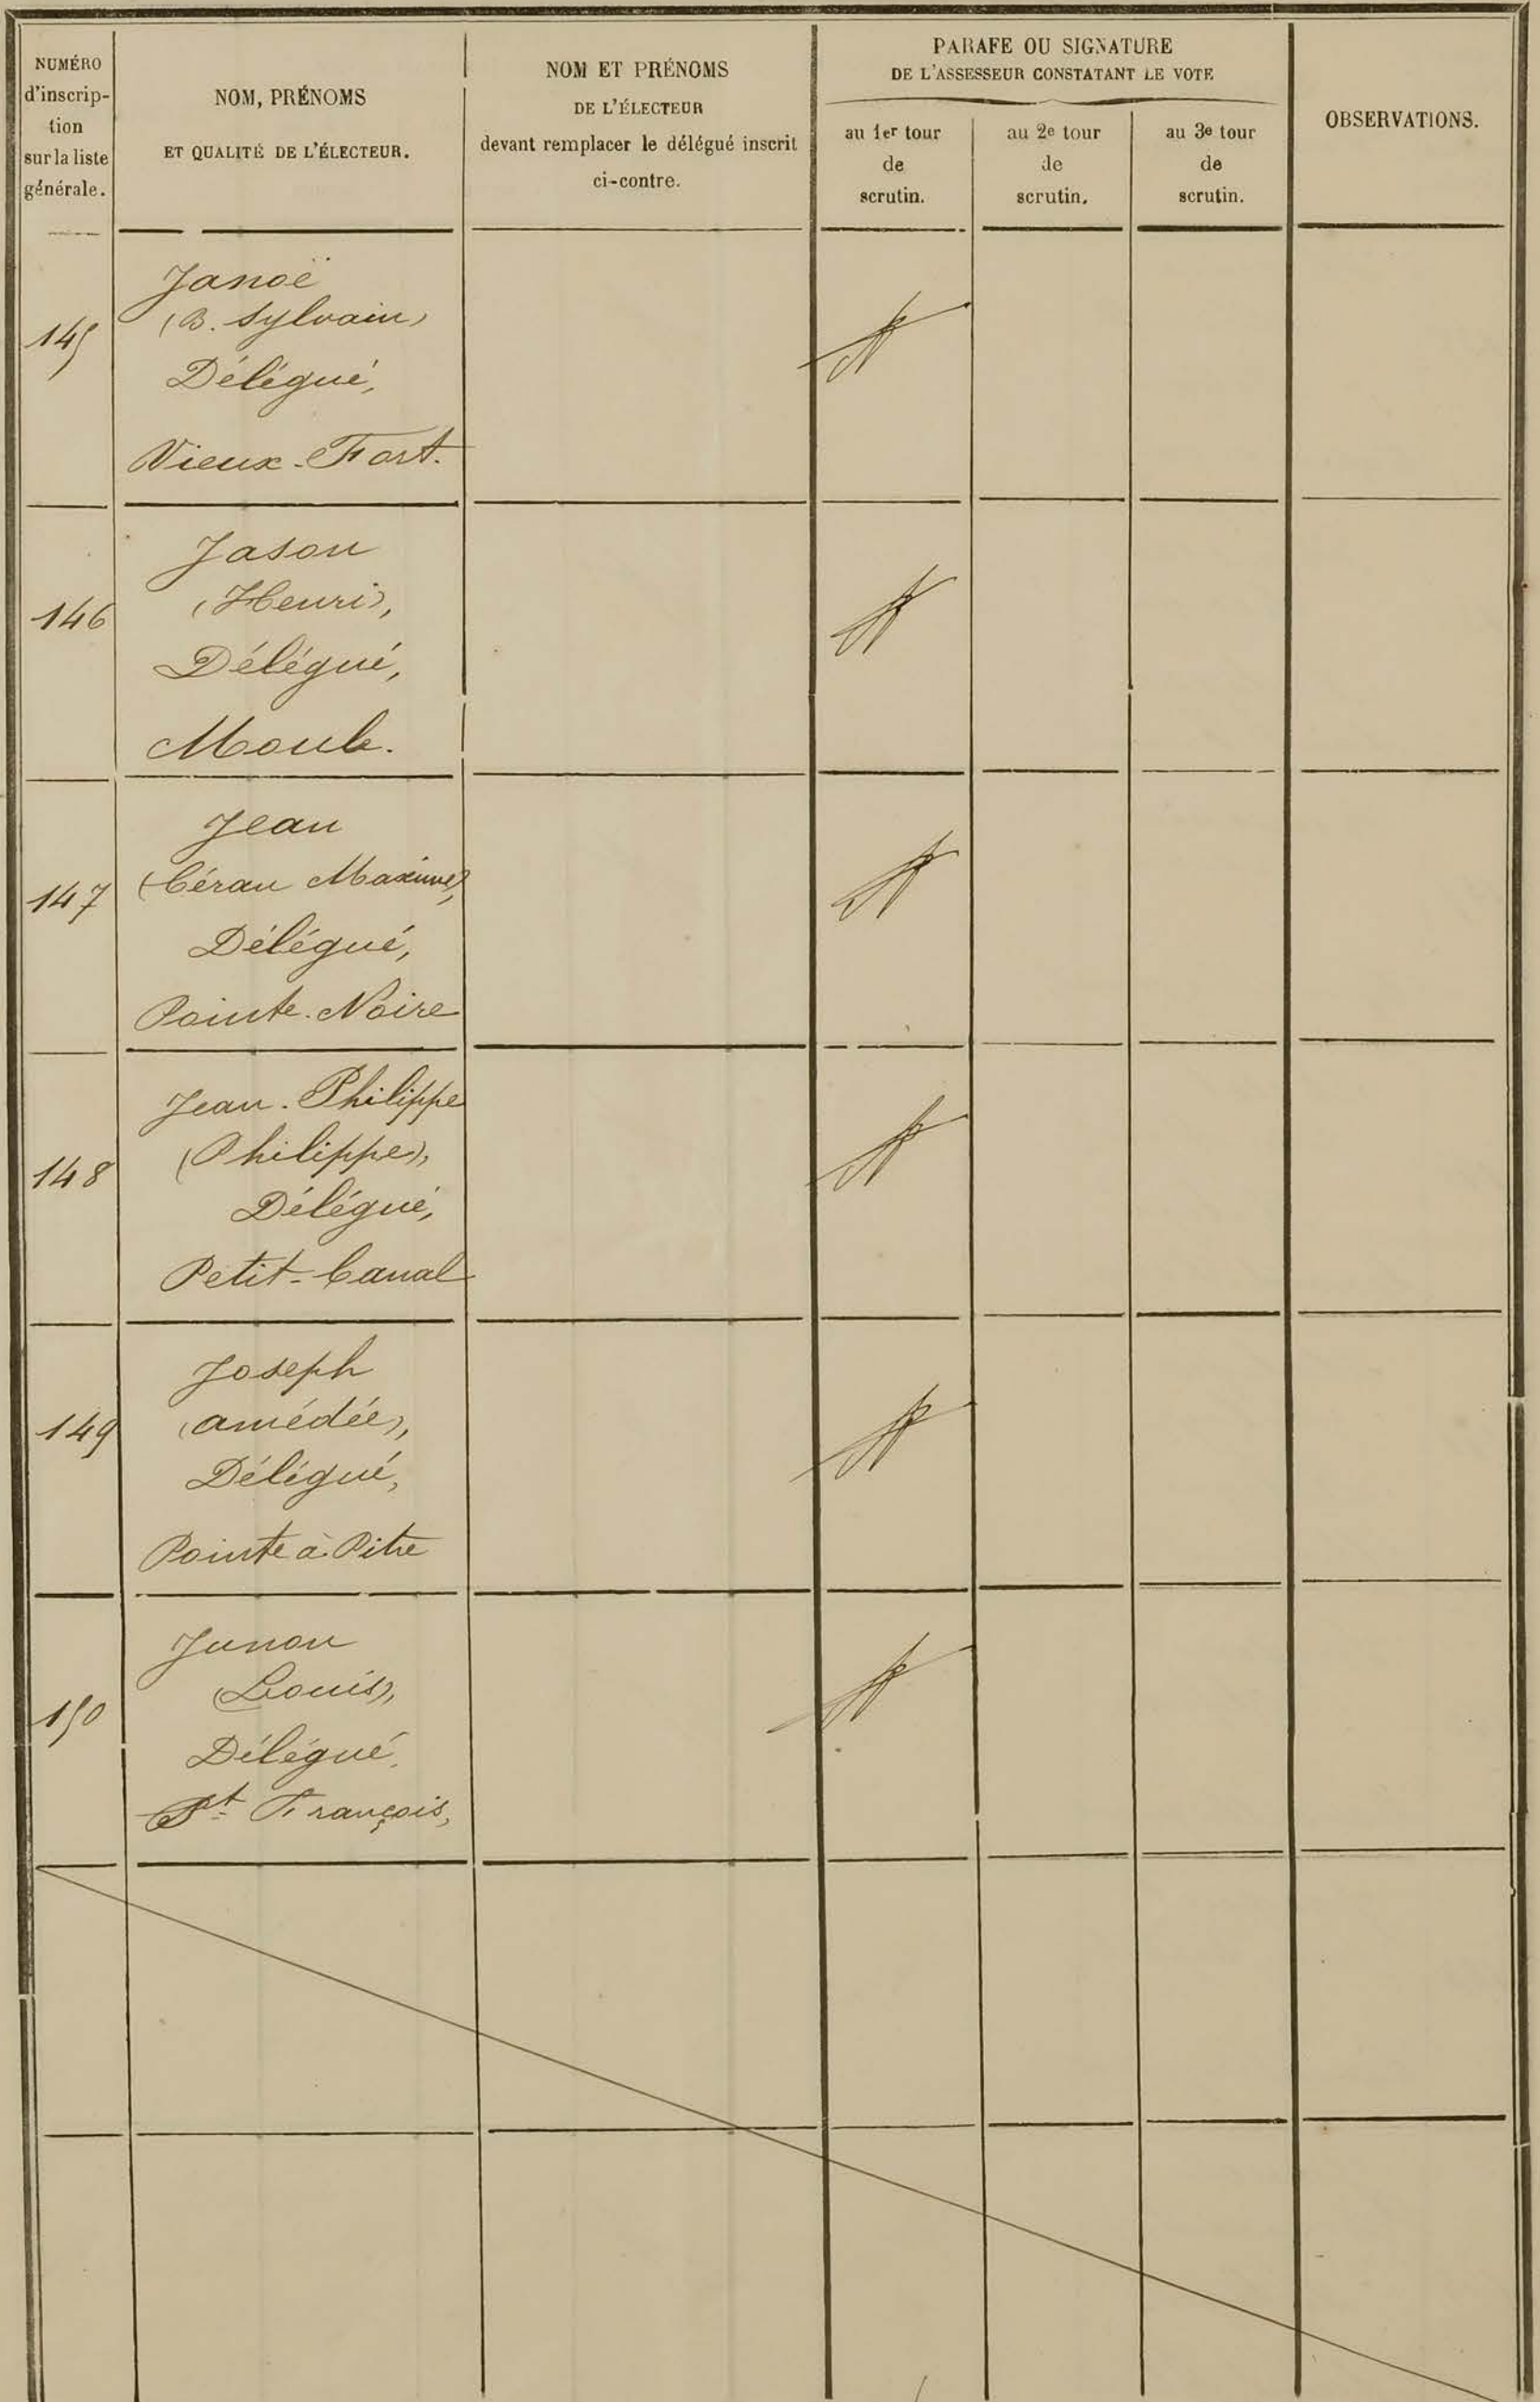 NUMÉRO
d'inscrip-
tion
sur la liste
générale.
NOM, PRÉNOMS
ET QUALITÉ DE L'ÉLECTEUR.
NOM ET PRÉNOMS
DE L'ÉLECTEUR
devant remplacer le délégué inscrit
ci-contre.
PARAFE OU SIGNATURE
DE L'ASSESSEUR CONSTATANT LE VOTE
au 1er tour
de
scrutin.
au 2e tour
de
scrutin.
au 3e tour
de
scrutin.
OBSERVATIONS.
145
Janoë
(B. Sylvain)
Délégué,
Vieux-Fort.
146
Jason
(Henri),
Délégué,
Moule.
147
Jean
(Céran Maxime),
Délégué,
Pointe-Noire
148
Jean-Philippe
(Philippe),
Délégué,
Petit-Canal
149
Joseph
(Amédée),
Délégué,
Pointe à Pitre
150
Junon
(Louis),
Délégué,
St François,